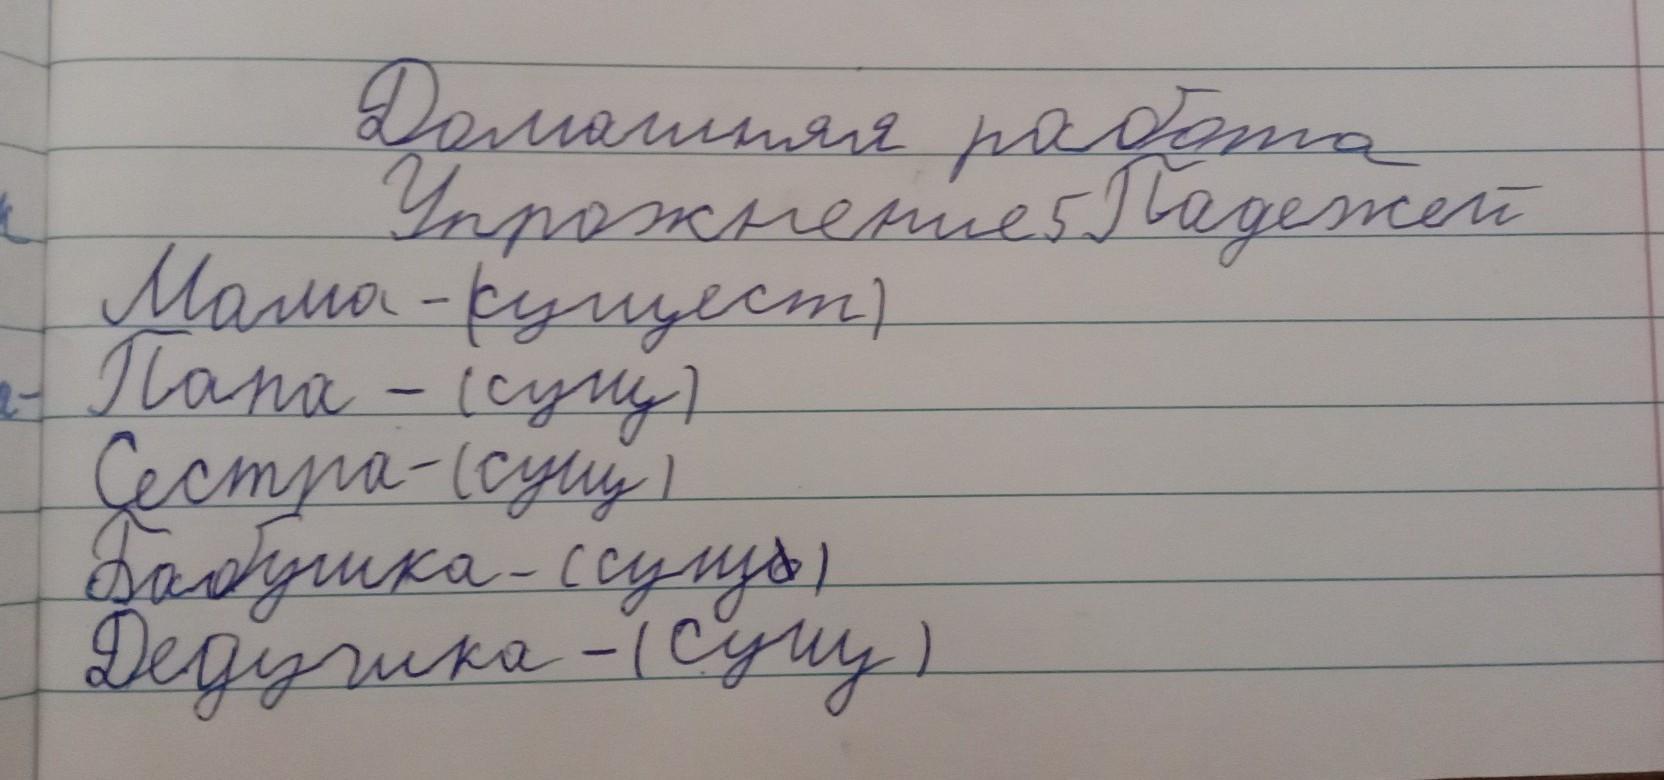 Домашняя работа
Упрожнение 5 Падежей
Мама - (сущест)
Папа - (сущ)
Сестра - (сущ)
Бабушка - (сущ)
Дедушка - (сущ)